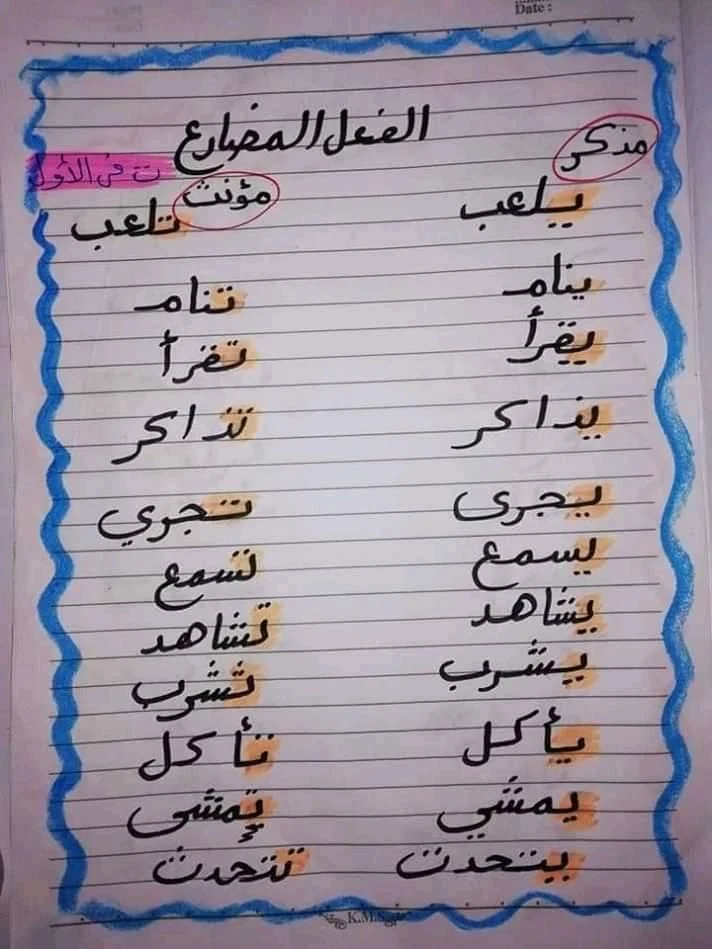 Date :
الفعل المضارع
مذكر
ت في الأول
مؤنث
يلعب تلعب
ينام تنام
يقرأ تقرأ
يذاكر تذاكر
يجرى تجري
يسمع تسمع
يشاهد تشاهد
يشرب تشرب
يأكل تأكل
يمشي تمشى
يتحدث تتحدث
K.M.S